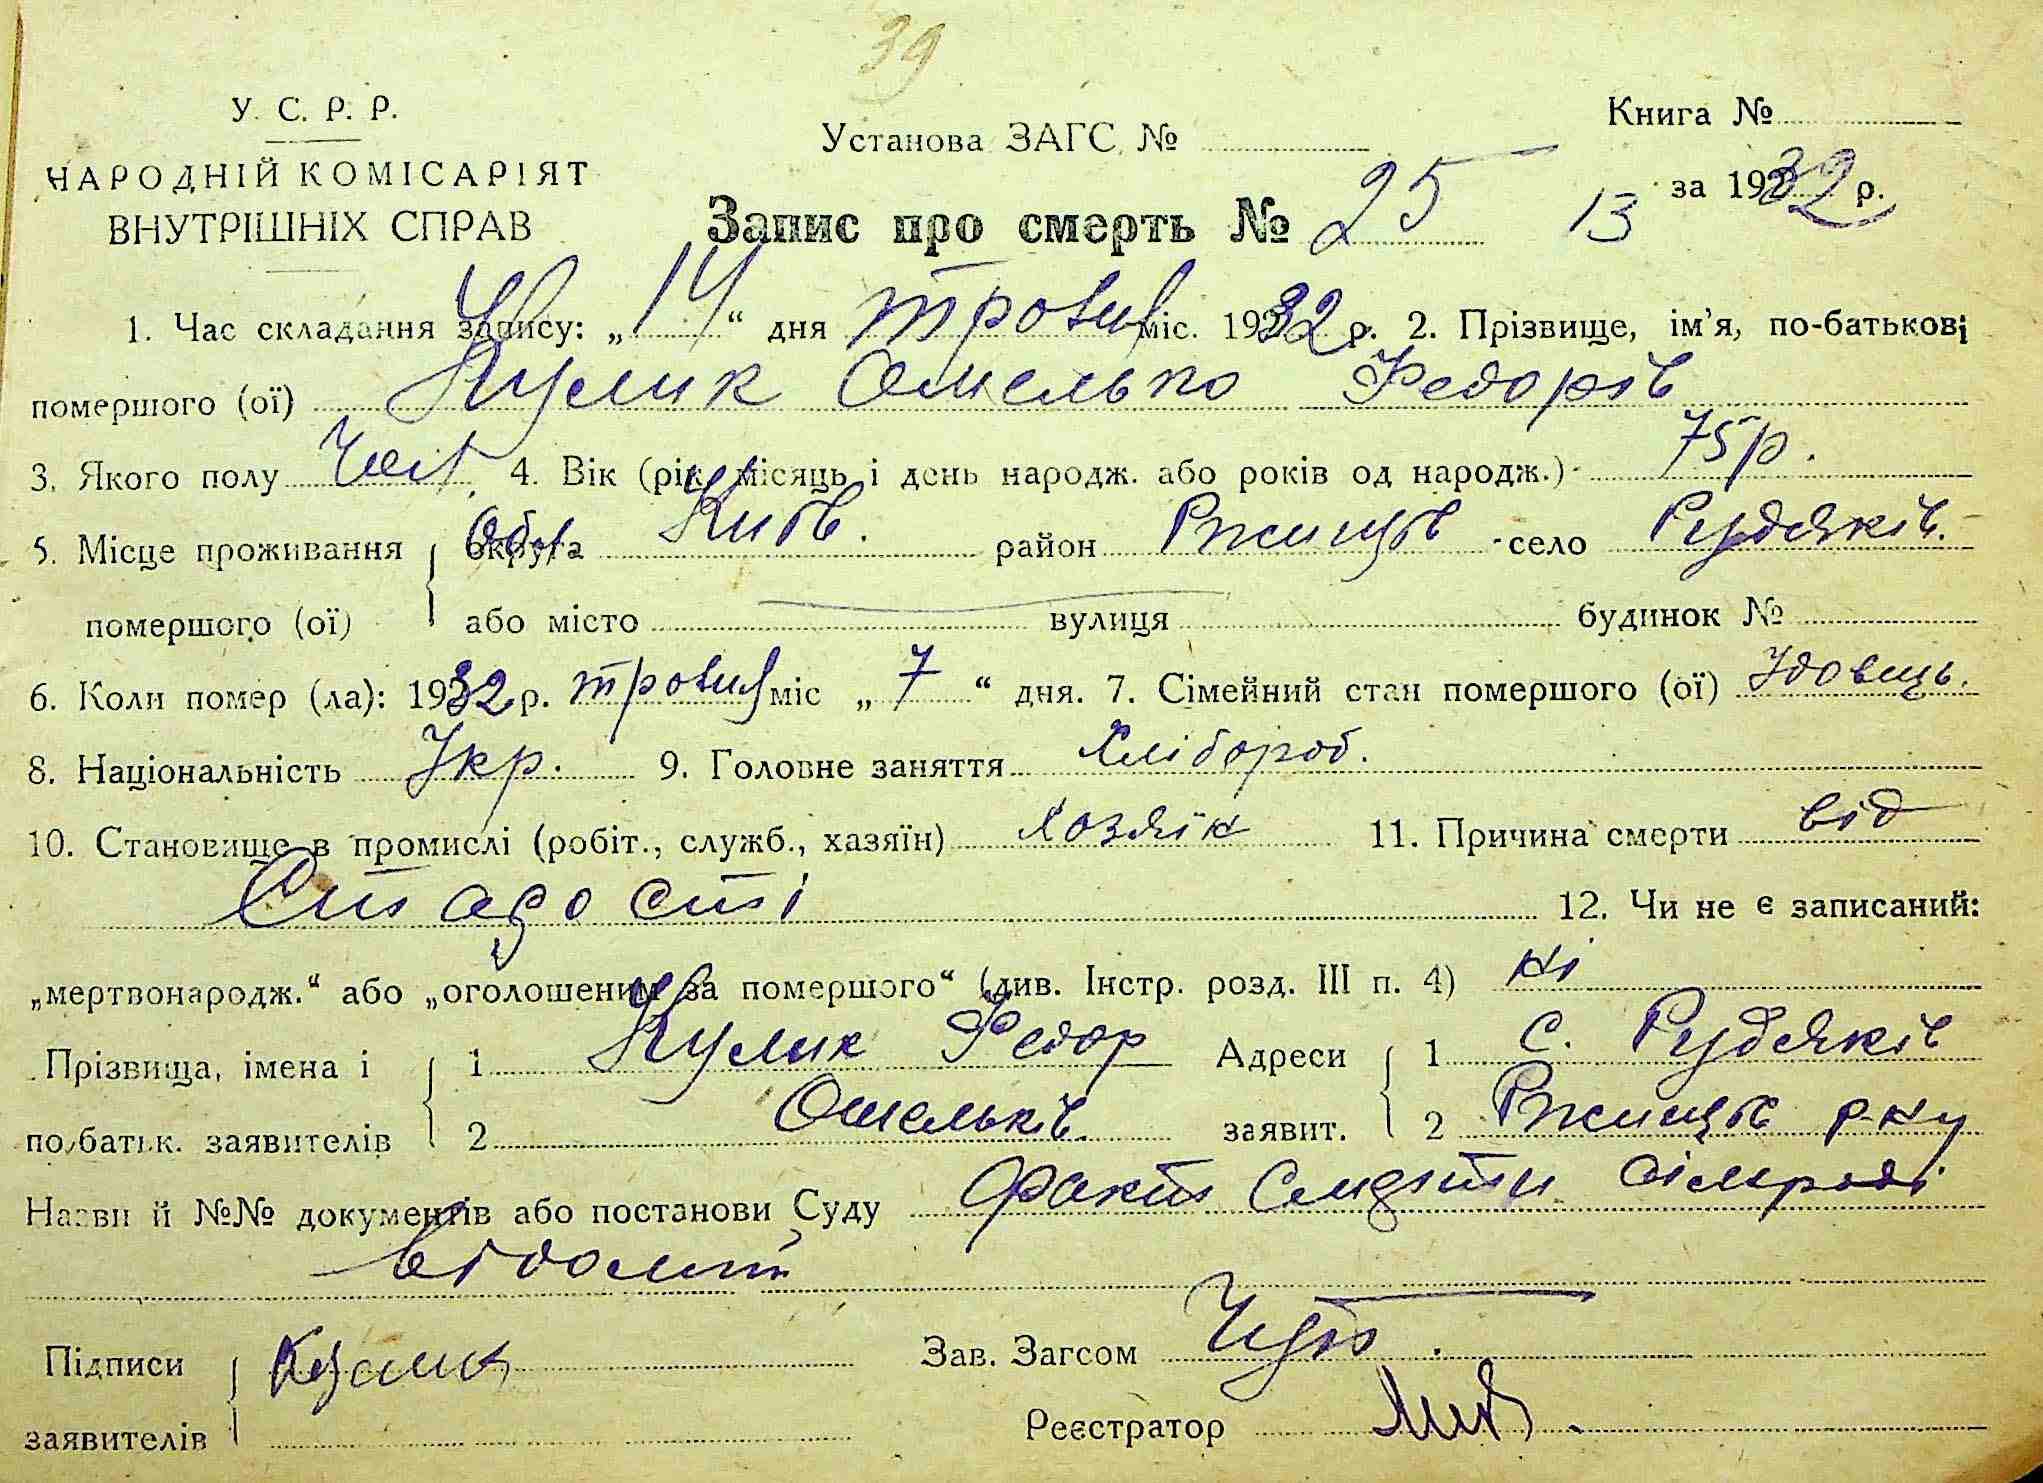 39
У. С. Р. Р.
НАРОДНІЙ КОМІСАРІЯТ
ВНУТРІШНІХ СПРАВ
Установа ЗАГС. №
Книга №
за 1932 р.
Запис про смерть № 25 13
1. Час складання запису: „14“ дня травня міс. 1932 р. 2. Прізвище, ім’я, по-батькові
помершого (ої) Кулик Омелько Федорів
3. Якого полу Чол. 4. Вік (рік, місяць і день народж. або років од народж.) 75 р.
5. Місце проживання округа Обл. Київ. район Ржищів село Рудяків.
помершого (ої) або місто вулиця будинок №
6. Коли помер (ла): 1932 р. травня міс „7“ дня. 7. Сімейний стан помершого (ої) Удовець.
8. Національність Укр. 9. Головне заняття Хлібороб.
10. Становище в промислі (робіт., служб., хазяїн) Хозяін 11. Причина смерти від
Старости 12. Чи не є записаний:
„мертвонародж.“ або „оголошеним за помершого“ (див. Інстр. розд. III п. 4) ні
Прізвища, імена і 1 Кулик Федор Адреси 1 с. Рудяків
по батьк. заявителів 2 Омельків. заявит. 2 Ржищів р-ну
Назви й №№ документів або постанови Суду Факт Смерти сільраді
відомий
Підписи Кулик Зав. Загсом
заявителів Реєстратор